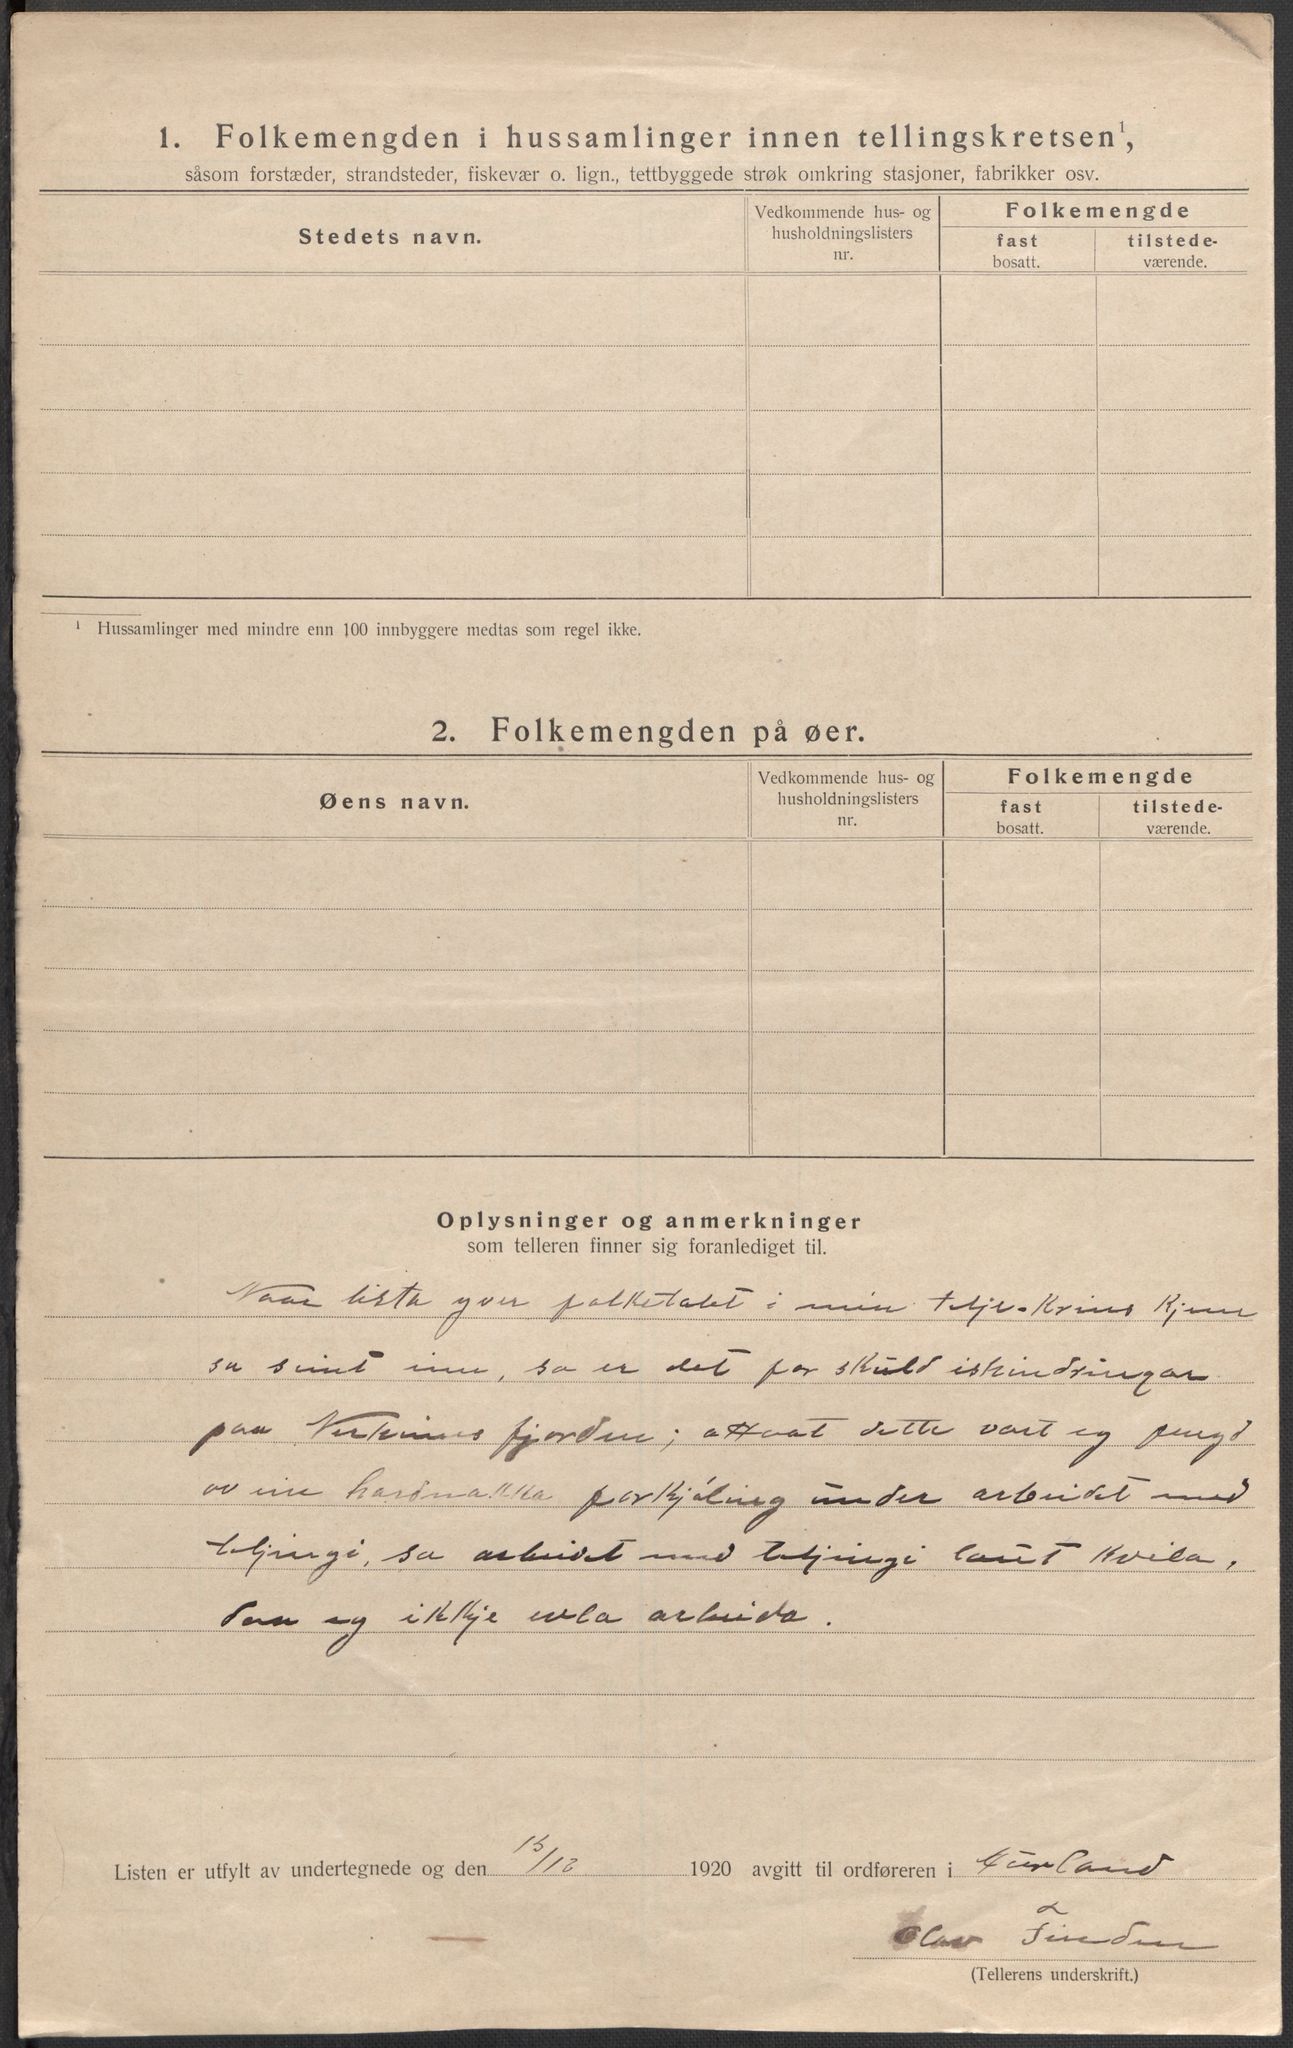 1. Folkemengden i hussamlinger innen tellingskretsen¹,
såsom forstæder, strandsteder, fiskevær o. lign., tettbyggede strøk omkring stasjoner, fabrikker osv.
Stedets navn.
Vedkommende hus- og husholdningslisters nr.
Folkemengde
fast bosatt.
tilstede-værende.
¹ Hussamlinger med mindre enn 100 innbyggere medtas som regel ikke.
2. Folkemengden på øer.
Øens navn.
Vedkommende hus- og husholdningslisters nr.
Folkemengde
fast bosatt.
tilstede-værende.
Oplysninger og anmerkninger
som telleren finner sig foranlediget til.
Naar lista yver folketalet i min telje-krins kjem
so seint inn, so er det for skuld ishindringar
paa fjorden; attaat dette vart eg
ov ein hardnakka forkjøling under arbeidet med
teljingi, so arbeidet med teljingi laut kvila,
daa eg ikkje evla arbeida.
Listen er utfylt av undertegnede og den 15/12 1920 avgitt til ordføreren i Aurland
Olav Finden
(Tellerens underskrift.)